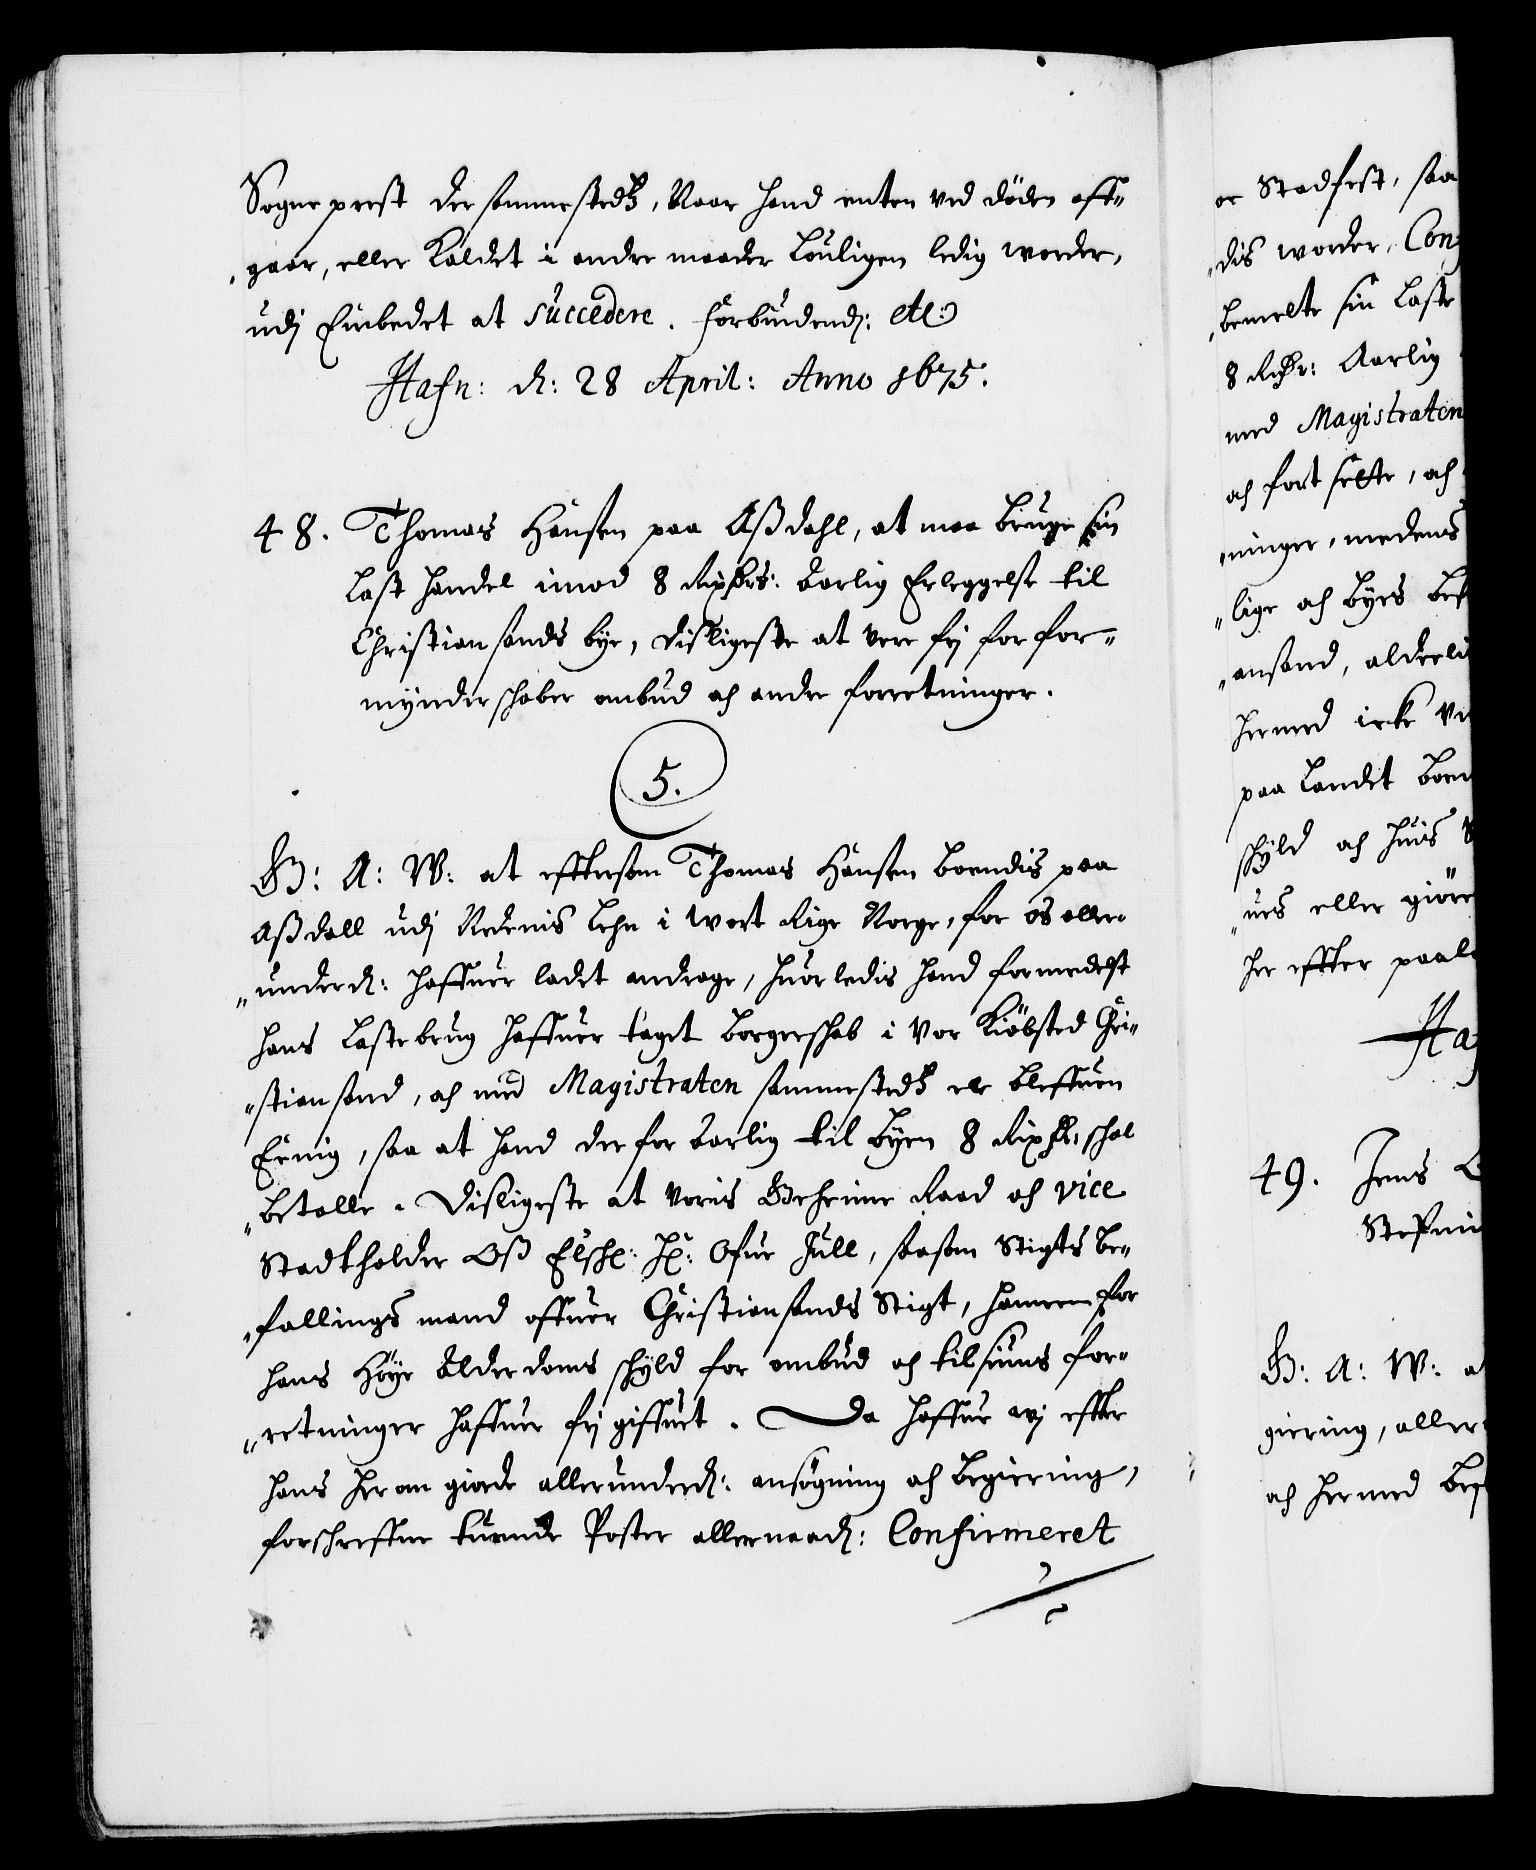 Sogneprest der sammestedtz, Naar hand enten ved döden aff„
„gaar, eller Kaldet i andre maader Louligen ledig worder,
udj Embedet at succedere. forbiudend: etc:
Hafn: d: 28 April: Anno 1675.
48. Thomas Hansen paa Aßdahl, at maa bruge sin
Last handel imod 8 Rixdrs: aarlig Erleggelse til
Christiansands bye, disligeste at vere frj for for„
mynderschaber ombud och andre forretninger.
5.
G: A: W: at efftersom Thomas Hansen boendis paa
Aßdall udj Nedenis Lehn i wort Rige Norge, for os aller„
„underd: haffuer ladet andrage, huorledis hand formedelst
hans Lastebrug haffuer taget borgerschab i vor Kiöbsted Chri„
„stiansand, och med Magistraten sammestedtz er bleffuen
Eenig, saa at hand derfor aarlig til byen 8 Rixdr, schal
„betalle. Disligeste at voris Geheime Raad och vice
Stadtholder Oß Elschel: Hr: Ofue Jull, saasom Stigts be„
„fallings mand offuer Christiansands Stigt, hannem for
hans Höye Alderdoms schyld for ombud och tilsiuns for„
„retninger haffuer frj giffuet. Da haffue wj effter
hans herom giorde allerunderd: ansögning och begiering,
forschreffne tuende Poster allernaad: Confirmeret
oc Stadfest, saa
„dis worder, Con
„bemelte sin Laste
8 Rixdr: Aarlig
med Magistraten
och fort sette, och
„ninger, medens
„lige och byes be
„ansand, alderli
hermed icke
paa Landet boen
schyld och huis
„ues eller giöre
her effter paal
Ha
49. Jens
Steffnin
G: A: W: a
giering, aller
och hermed bef